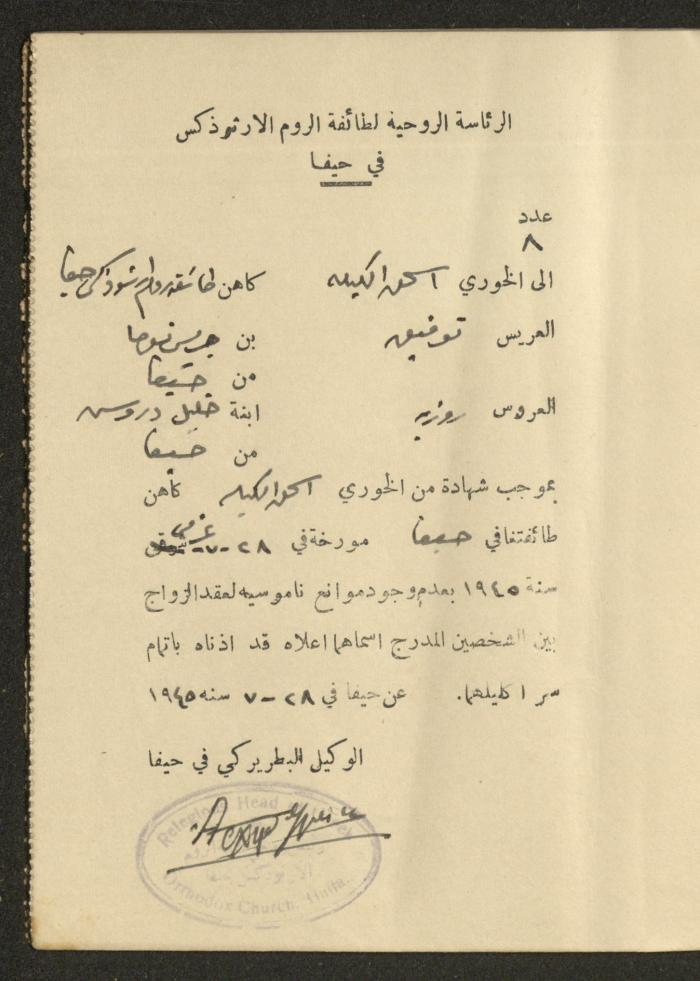 الرئاسة الروحية لطائفة الروم الارثوذكس
في حيفا
عدد
٨
الى الخوري اسحق الكيله كاهن طائفة روم ارثوذكس حيفا
العريس توفيق بن جريس نوما
من حيفا
العروس روزيه ابنة خليل دروس
من حيفا
بموجب شهادة من الخوري اسحق الكيله كاهن
طائفتنا في حيفا مورخة في ٢٨-٧- غربي
سنة ١٩٤٥ بعدم وجود موانع ناموسيه لعقد الزواج
بين الشخصين المدرج اسماهما اعلاه قد اذناه باتمام
سر اكليلهما. عن حيفا في ٢٨-٧ سنه ١٩٤٥
الوكيل البطريركي في حيفا
Religious Head
الارثوذكس حيفا
Orthodox Church, Haifa.